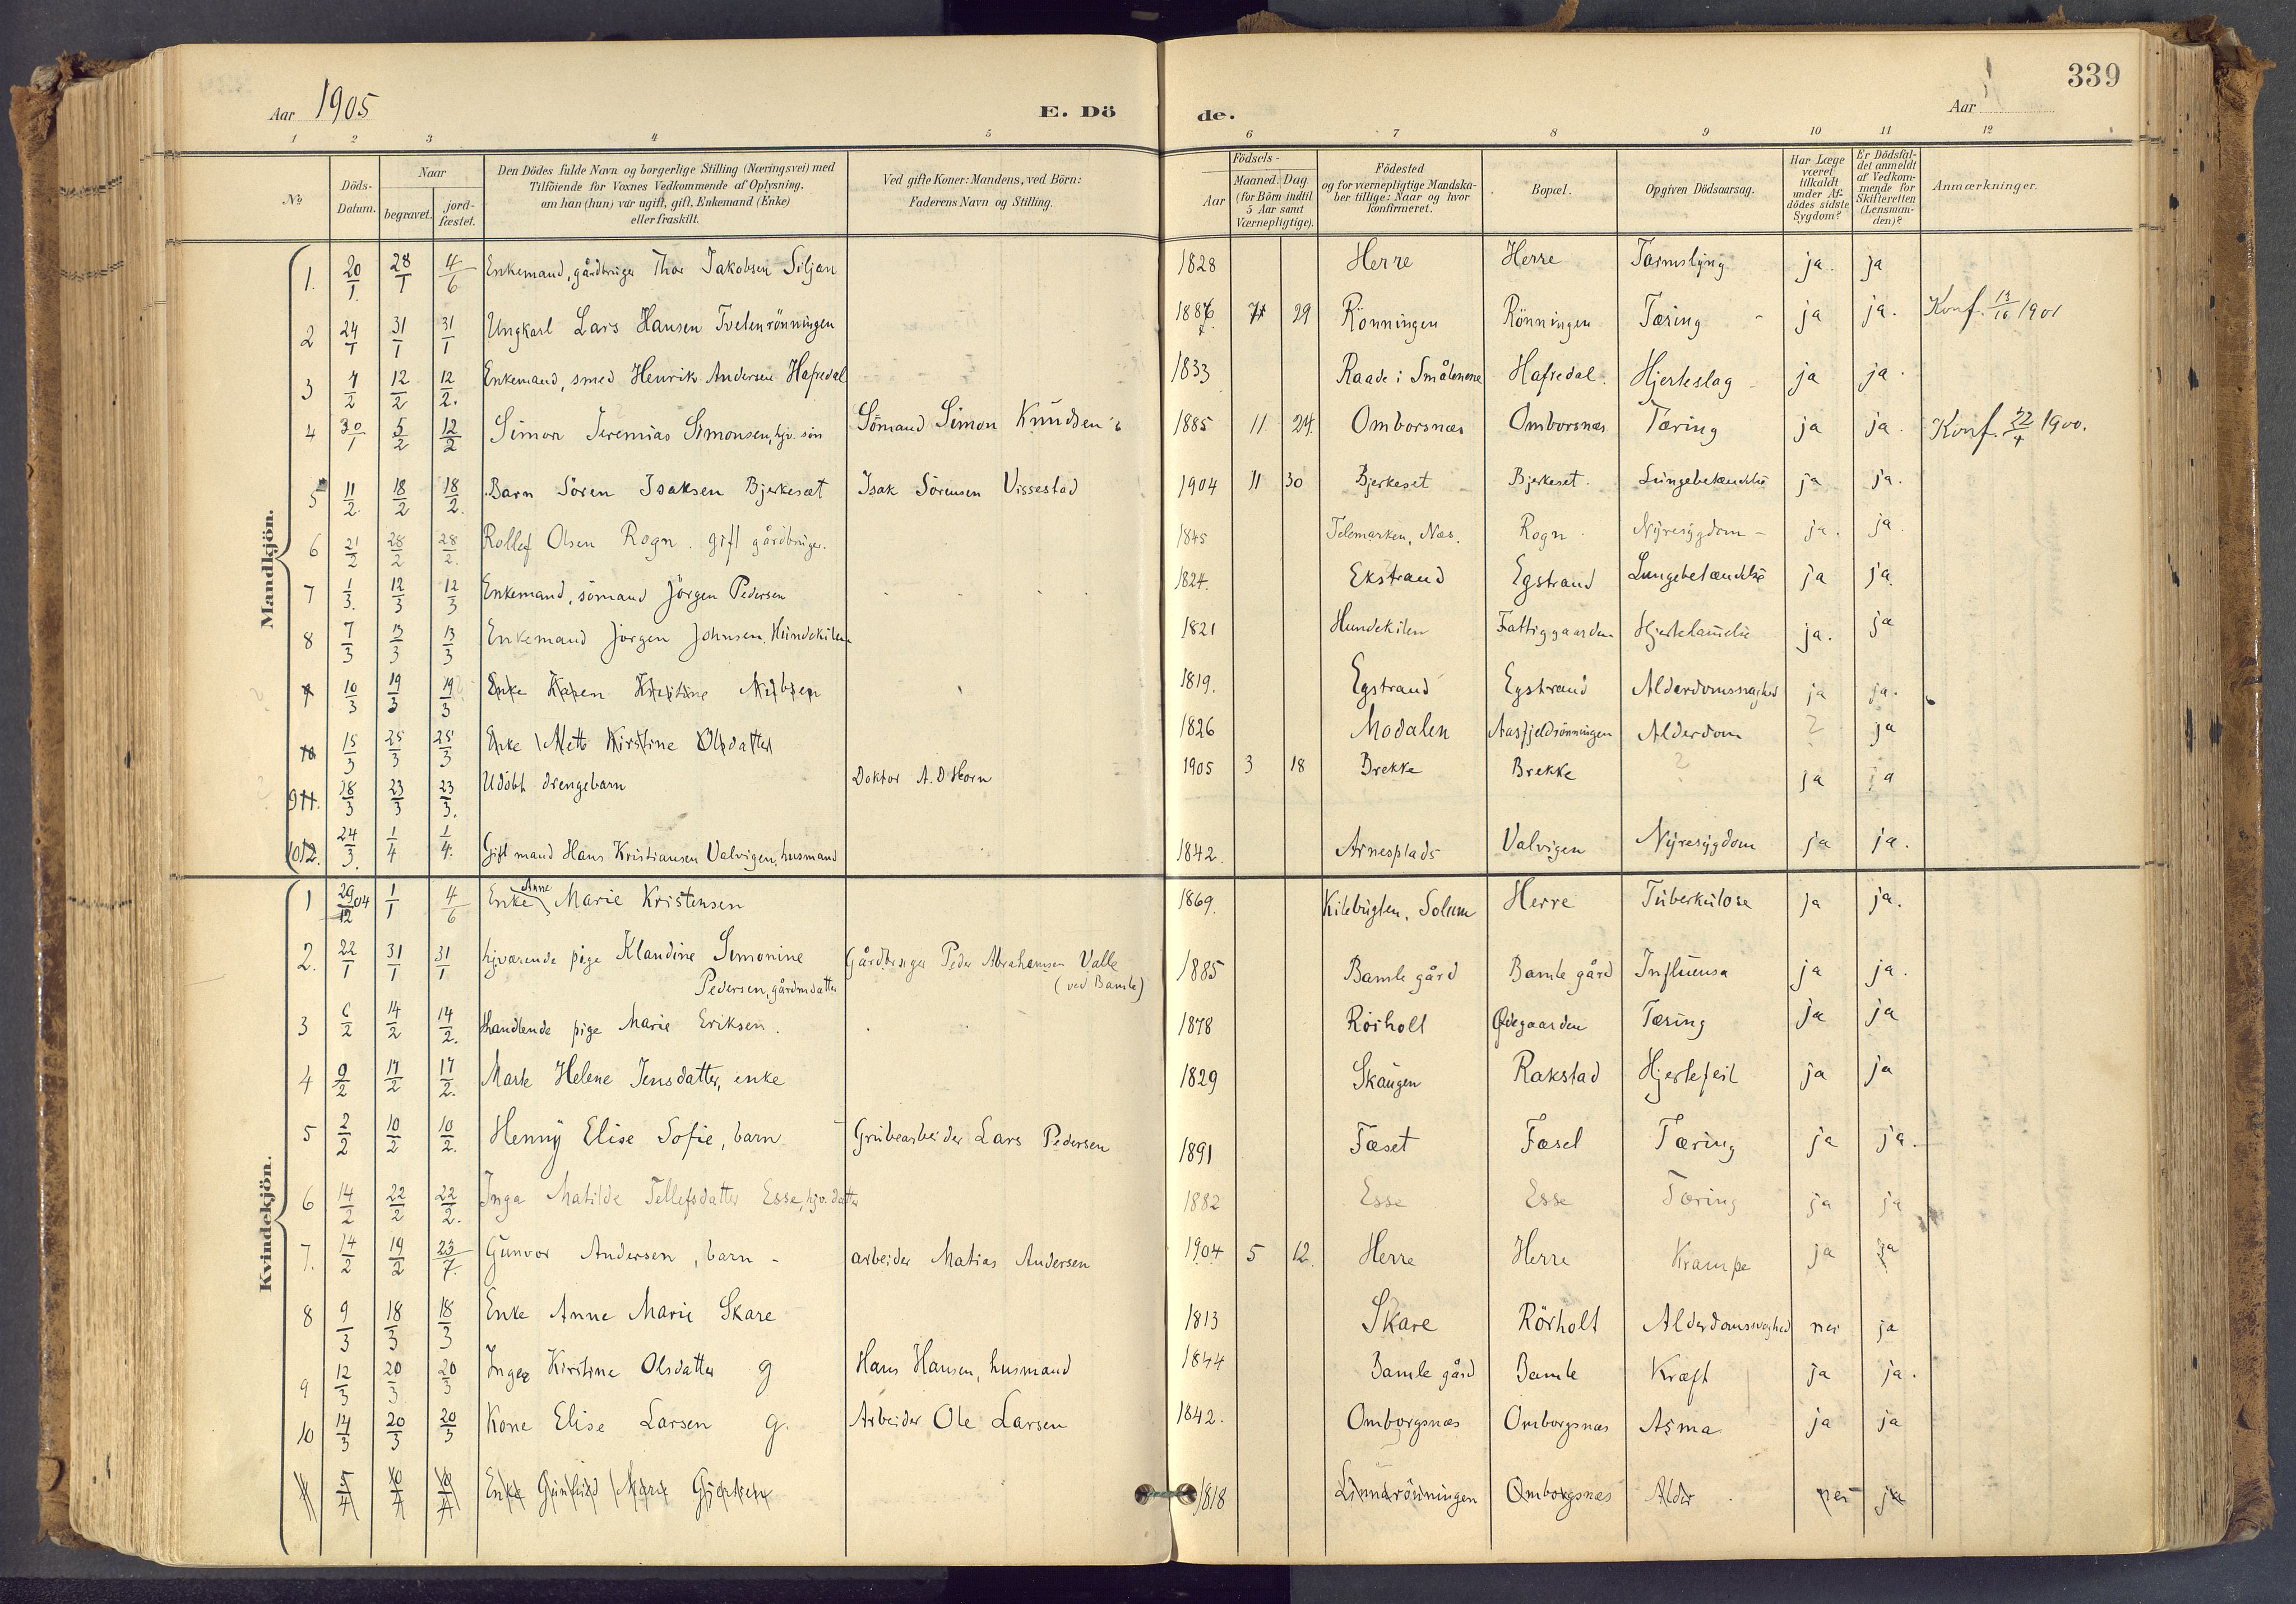 339
Aar 1905
E. Dö
de.
Aar
1 2 3 4 5 6 7 8 9 10 11 12
№
Döds-Datum.
Naar
begravet.
jord-fæstet.
Den Dödes fulde Navn og borgerlige Stilling (Næringsvei) med
Tilföiende for Voxnes Vedkommende af Oplysning,
om han (hun) var ugift, gift, Enkemand (Enke)
eller fraskilt.
Ved gifte Koner: Mandens, ved Börn:
Faderens Navn og Stilling.
Födsels-
Aar
Maaned. Dag
(for Börn indtil
5 Aar samt
Værnepligtige).
Födested
og for værnepligtige Mandska-
ber tillige: Naar og hvor
konfirmeret.
Bopæl.
Opgiven Dödsaarsag.
Har Læge
været
tilkaldt
under Af-
dödes sidste
Sygdom?
Er Dödsfal-
det anmeldt
af Vedkom-
mende for
Skifteretten
(Lensman-
den)?
Anmærkninger.
Mandkjön.
1. 20/1. 28/1 4/6 Enkemand, gårdbruger Thor Jakobsen Siljan 1828 Herre Herre Tarmslyng ja. ja
2 24/1 31/1 31/1 Ungkarl Lars Hansen Tvetenrönningen 1886 7 29 Rönningen Rönningen Tæring - ja ja. Konf. 13/10 1901
3 4/2 12/2 12/2. Enkemand, smed Henrik Andersen Hafredal 1833 Raade i Smålenene Hafredal. Hjerteslag - ja ja.
4 30/1 5/2 12/2 Simon Jeremias Simonsen, hjv. søn Sömand Simon Knudsen's 1885 11 24. Omborsnæs Omborsnæs Tæring ja ja. Konf. 22/4 1900.
5 11/2. 18/2 18/2. Barn Sören Isaksen Bjerkesæt Isak Sörensen Vissestad 1904 11 30 Bjerkeset Bjerkeset. Lungebetændelse ja ja.
6 21/2 28/2 28/2. Rollef Olsen Rogn. gift gårdbruger. 1845 Telemarken, Næs. Rogn. Nyresygdom - ja. ja.
7 1/3. 12/3 12/3 Enkemand, sömand Jörgen Pedersen 1824. Ekstrand Egstrand Lungebetændelse ja ja.
8 7/3 13/3 13/3 Enkemand Jörgen Johnsen, Hundekilen 1821 Hundekilen Fattiggaarden Hjertelamelse ja. ja
10/3 19/3 19/3 Enke Karen Kristine Nilsen 1819. Egstrand Egstrand Alderdomssvaghed ja ja.
10 15/3 25/3 25/3 Enke Mette Kirstine Olsdatter 1826 Modalen Aasfjeldrönningen Alderdom ? ja
9 11. 18/3 23/3 23/3. Udöbt drengebarn Doktor A. D Horn 1905 3 18 Brekke Brekke ? ja ja
10 12. 24/3. 1/4 1/4. Gift mand Hans Kristiansen Valvigen, husmand 1842. Arnesplads Valvigen Nyresygdom ja ja.
Kvindekjön.
1 29/12 04 1/1 4/6 Enke Anne Marie Kristensen 1869. Kilebugten, Solum Herre Tuberkulose ja ja.
2. 22/1 31/1 31/1 hjvarende pige Klandine Simonine Gårdbruger Peder Abrahamsen Valle 1885 Bamle gård Bamle gård Influensa ja ja.
Pedersen, gårdmdatter (ved Bamle)
3 6/2 14/2 14/2. Handlende pige Marie Eriksen. 1878 Rörholt Ödegaarden Tæring ja ja
4 9/2 17/2 17/2. Marte Helene Jensdatter, enke 1829 Skaugen Rakstad Hjertefeil ja ja
5 2/2 10/2 10/2. Henny Elise Sofie, barn Grubearbeider Lars Pedersen 1891 Fæset Fæset Tæring ja ja.
6 14/2 22/2 22/2. Inga Matilde Tellefsdatter Esse, hjv. datter 1882 Esse Esse Tæring ja ja
7. 14/2 19/2 23/7. Gunvor Andersen, barn - arbeider Matias Andersen 1904 5 12. Herre Herre Krampe ja ja
8 9/3 18/3 18/3 Enke Anne Marie Skare 1813 Skare Rörholt Alderdomssvaghed nei ja
9 12/3 20/3 20/3 Inger Kirstine Olsdatter g Hans Hansen, husmand 1844 Bamle gård Bamle Kræft ja ja.
10 14/3 20/3 20/3 Kone Elise Larsen g. Arbeider Ole Larsen 1842. Omborgsnæs Omborgsnæs Asma ja ja
5/4 10/4 10/4 Enke Marie 1818 Linnarönningen Omborgsnæs Alder nei ja